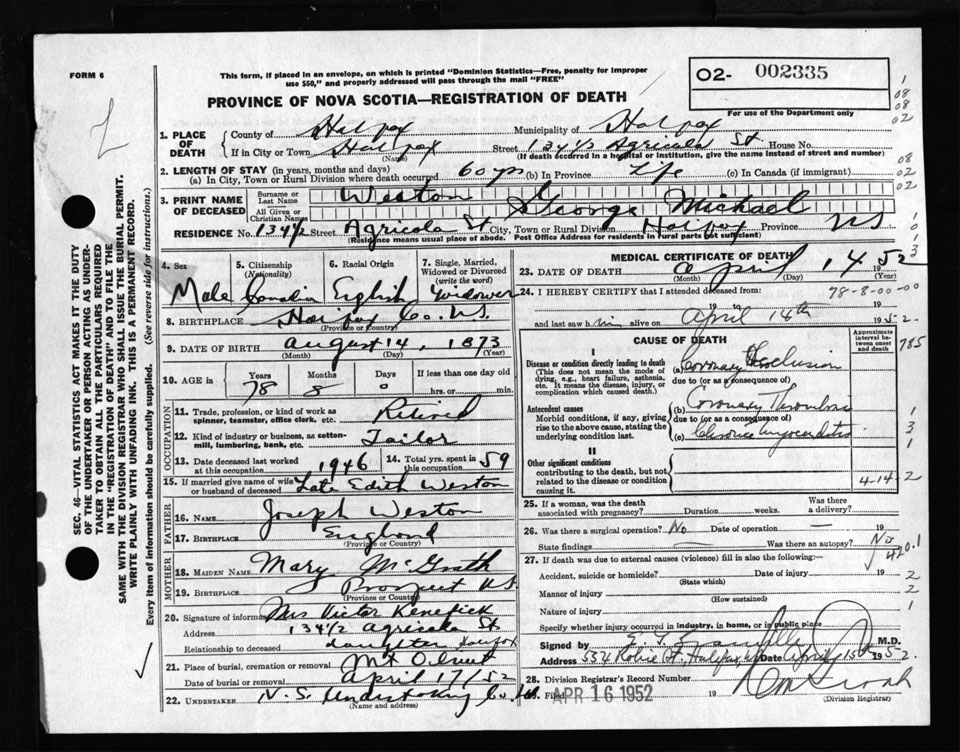 FORM 6
This form, if placed in an envelope, on which is printed "Dominion Statistics—Free, penalty for improper
use $50," and properly addressed will pass through the mail "FREE"
O2- 002335
For use of the Department only
PROVINCE OF NOVA SCOTIA—REGISTRATION OF DEATH
1. PLACE OF DEATH
County of Halifax Municipality of Halifax
If in City or Town Halifax (Name) Street 134½ Agricola St House No.
(If death occurred in a hospital or institution, give the name instead of street and number)
2. LENGTH OF STAY (in years, months and days)
(a) In City, Town or Rural Division where death occurred 60 yrs (b) In Province Life (c) In Canada (if immigrant)
3. PRINT NAME OF DECEASED
Surname or Last Name Weston
All Given or Christian Names George Michael
RESIDENCE No. 134½ Street Agricola St City, Town or Rural Division Halifax Province NS
(Residence means usual place of abode. Post Office Address for residents in rural parts not sufficient)
4. Sex Male
5. Citizenship (Nationality) Canadian
6. Racial Origin English
7. Single, Married, Widowed or Divorced (write the word) Widower
8. BIRTHPLACE Halifax Co. N.S.
(Province or Country)
9. DATE OF BIRTH August 14, 1873
(Month) (Day) (Year)
10. AGE in Years 78 Months 8 Days 0 If less than one day hrs. or min.
OCCUPATION
11. Trade, profession or kind of work as spinner, teamster, office clerk, etc. Retired
12. Kind of industry or business, as cotton-mill, lumbering, bank, etc. Tailor
13. Date deceased last worked at this occupation 1946
14. Total yrs. spent in this occupation 59
15. If married give name of wife or husband of deceased Late Edith Weston
FATHER
16. NAME Joseph Weston
17. BIRTHPLACE England
(Province or Country)
MOTHER
18. MAIDEN NAME Mary McGrath
19. BIRTHPLACE Prospect NS
(Province or Country)
20. Signature of informant Mrs Victor Kenefick
Address 134½ Agricola St
Relationship to deceased daughter Halifax
21. Place of burial, cremation or removal Mt Olivet
Date of burial or removal April 17/52
22. UNDERTAKER N.S. Undertaking Co. Ltd
(Name and address)
MEDICAL CERTIFICATE OF DEATH
23. DATE OF DEATH April 14 1952
(Month) (Day) (Year)
24. I HEREBY CERTIFY that I attended deceased from:
78-8-00-00
19 to 19
and last saw him alive on April 14th 1952
CAUSE OF DEATH
Approximate interval between onset and death
I
Disease or condition directly leading to death
(This does not mean the mode of dying, e.g., heart failure, asthenia, etc. It means the disease, injury, or complication which caused death.)
(a) Coronary Occlusion
due to (or as a consequence of)
Antecedent causes
Morbid conditions, if any, giving rise to the above cause, stating the underlying condition last.
(b) Coronary Thrombosis
due to (or as a consequence of)
(c) Chronic myocarditis
II
Other significant conditions
contributing to the death, but not related to the disease or condition causing it.
4-14-2
25. If a woman, was the death associated with pregnancy? Duration weeks. Was there a delivery?
26. Was there a surgical operation? No Date of operation — 19
State findings Was there an autopsy? No
420.1
27. If death was due to external causes (violence) fill in also the following:—
Accident, suicide or homicide? Date of injury 19
(State which)
Manner of injury
(How sustained)
Nature of injury
Specify whether injury occurred in industry, in home, or in public place
Signed by M.D.
Address Halifax Date April 15 1952
28. Division Registrar's Record Number
29. Filed APR 16 1952 19
(Division Registrar)
SEC. 46—VITAL STATISTICS ACT MAKES IT THE DUTY
OF THE UNDERTAKER OR PERSON ACTING AS UNDER-
TAKER TO OBTAIN ALL THE PARTICULARS REQUIRED
IN THE "REGISTRATION OF DEATH" AND TO FILE THE
SAME WITH THE DIVISION REGISTRAR WHO SHALL ISSUE THE BURIAL PERMIT.
WRITE PLAINLY WITH UNFADING INK. THIS IS A PERMANENT RECORD.
Every item of information should be carefully supplied. (See reverse side for instructions.)
1
08
08
02
08
02
02
785